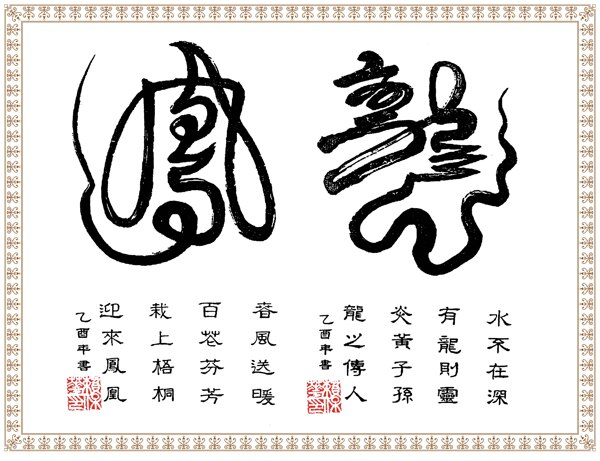 龍
水不在深
有龍則靈
炎黃子孫
龍之傳人
乙酉年書
鳳
春風送暖
百花芬芳
栽上梧桐
迎來鳳凰
乙酉年書